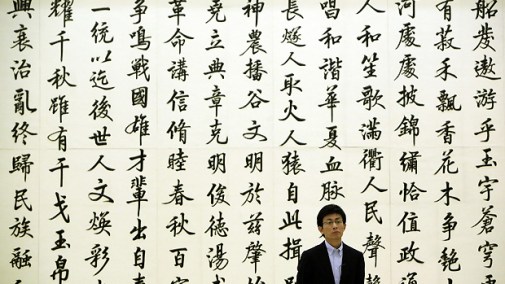 船發遨游乎玉宇蒼穹
有菽禾飄香花木爭艷
河處處披錦繡恰值政通
人和笙歌滿衢人民聲聲
唱和諧華夏血脈
長燧人取火人猿自此揖
神農播谷文明於茲肇
堯立典章克明俊德湯武
革命講信脩睦春秋百
爭鳴戰國雄才輩出自
一統以迄後世人文煥彩
耀千秋雖有干戈玉帛
興衰治亂終歸民族融